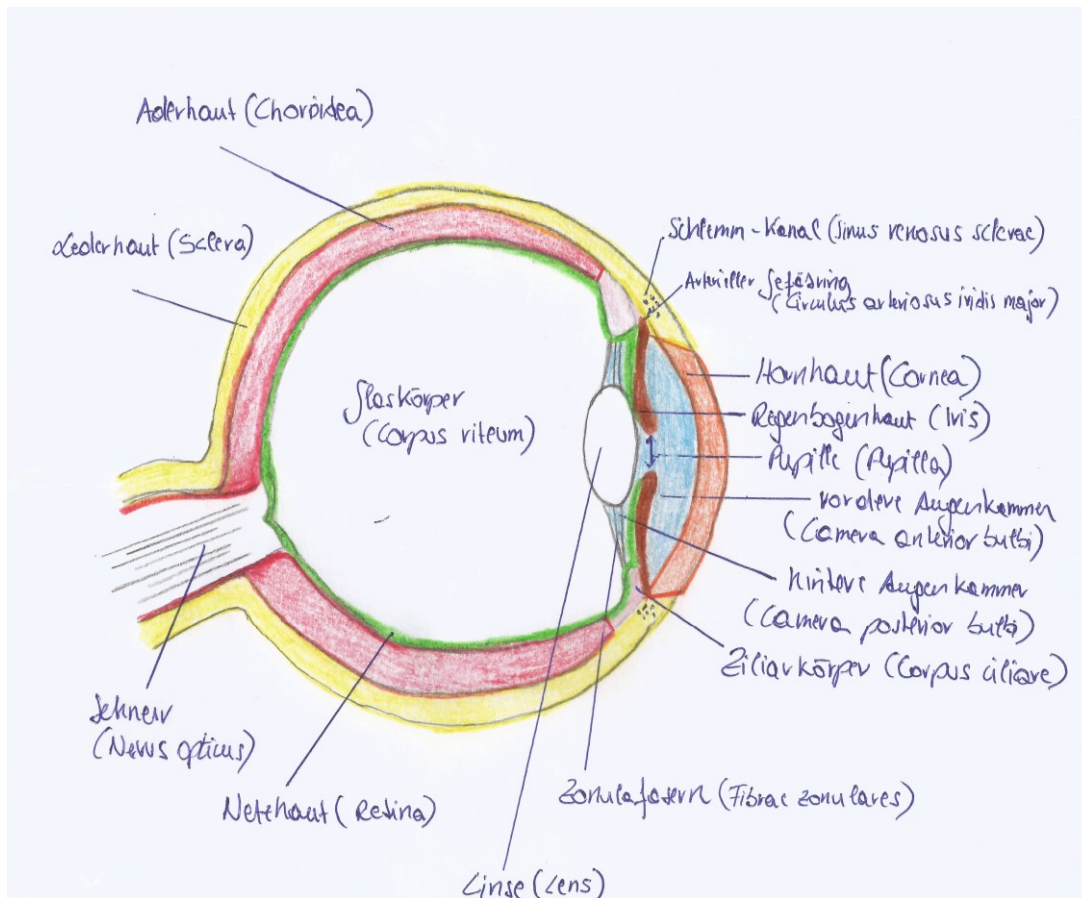 Aderhaut (Choroidea)
Lederhaut (Sclera)
Schlemm-Kanal (Sinus venosus sclerae)
Arterieller Gefäßring
(Circulus arteriosus iridis major)
Hornhaut (Cornea)
Regenbogenhaut (Iris)
Pupille (Pupilla)
vordere Augenkammer
(Camera anterior bulbi)
hintere Augenkammer
(Camera posterior bulbi)
Ziliarkörper (Corpus ciliare)
Glaskörper
(Corpus viteum)
Sehnerv
(Nervus opticus)
Netzhaut (Retina)
Zonulafasern (Fibrae zonulares)
Linse (Lens)